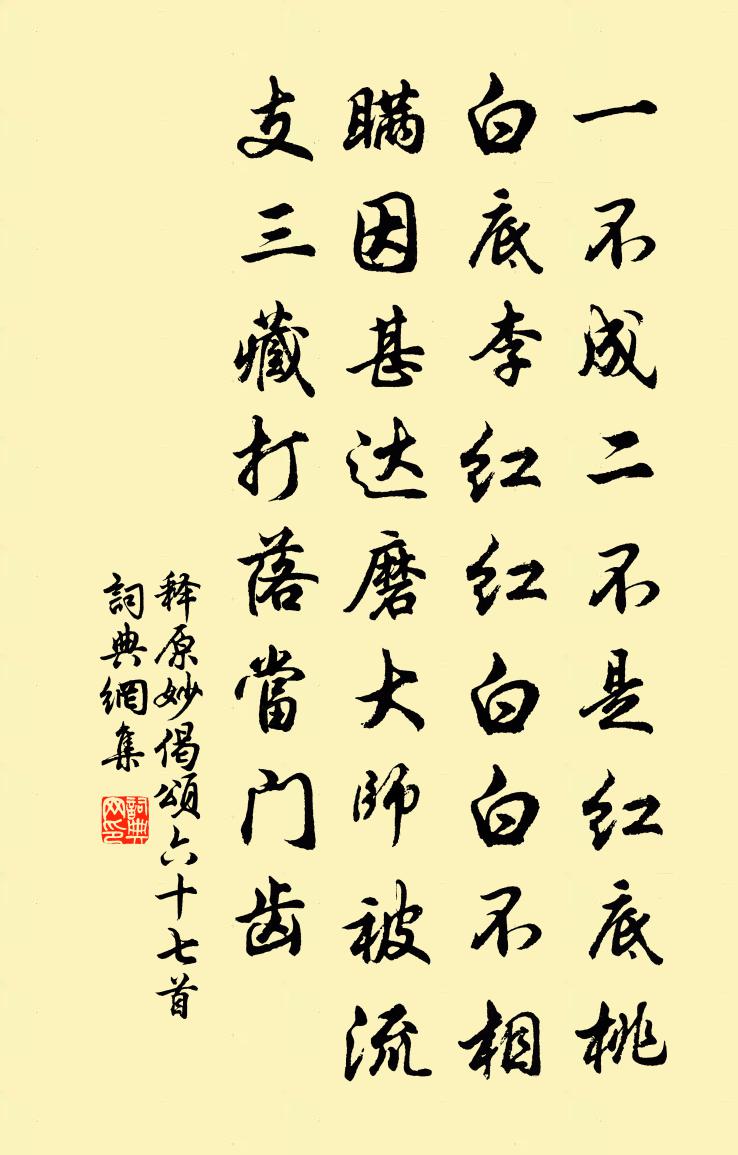 一不成二不是红底桃
白底李红红白白不相
瞒因甚达磨大师被流
支三藏打落當门齿
释原妙偈頌六十七首
詞典網集
詞典網印